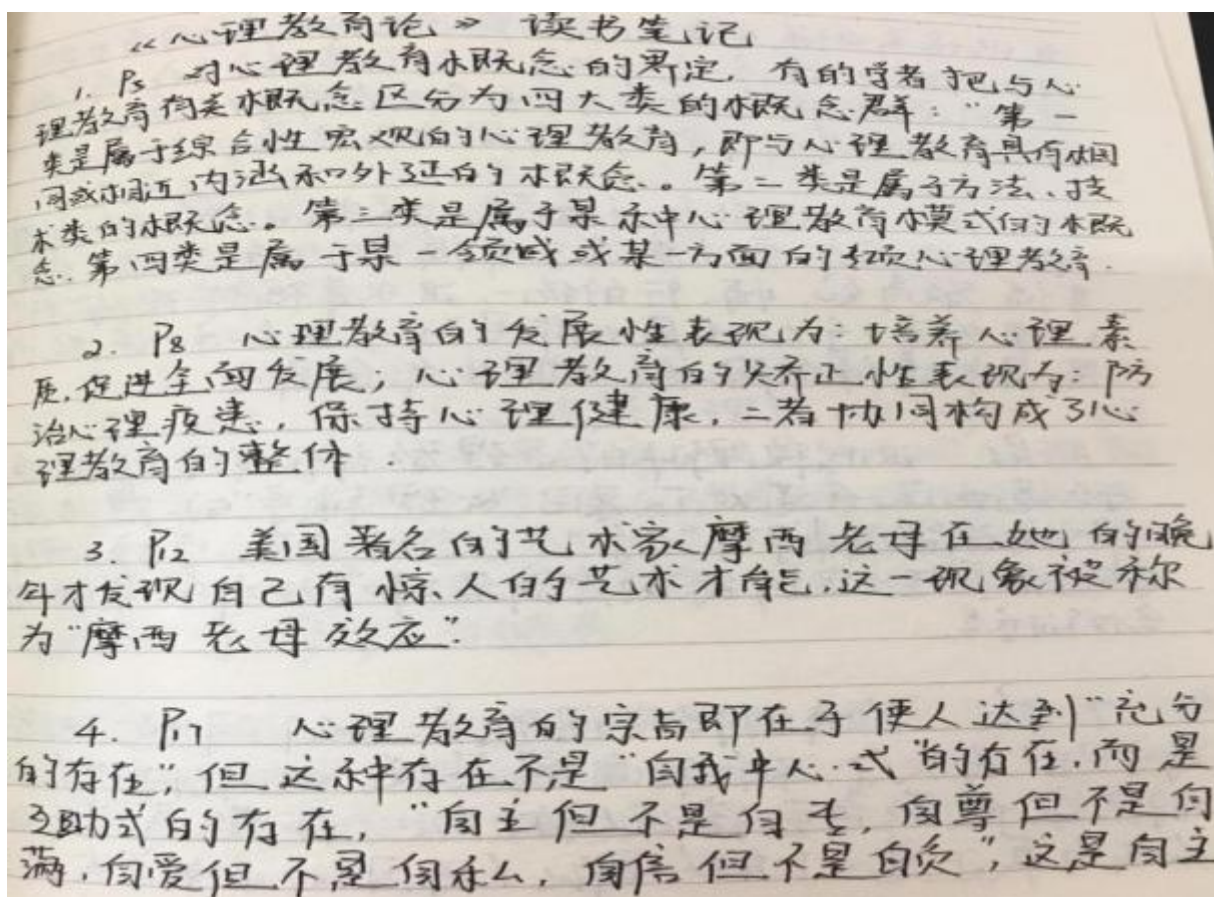 《心理教育论》读书笔记
1. P5 对心理教育概念的界定，有的学者把与心
理教育有关概念区分为四大类的概念群："第一
类是属于综合性宏观的心理教育，即与心理教育具有相
同或相近内涵和外延的概念。第二类是属于方法、技
术类的概念。第三类是属于某种心理教育模式的概
念。第四类是属于某一领域或某一方面的专项心理教育.
2. P8 心理教育的发展性表现为：培养心理素
质，促进全面发展；心理教育的矫正性表现为：防
治心理疾患，保持心理健康，二者协同构成了心
理教育的整体.
3. P12 美国著名的艺术家摩西老母在她的晚
年才发现自己有惊人的艺术才能，这一现象被称
为"摩西老母效应".
4. P17 心理教育的宗旨即在于使人达到"充分
的存在"，但这种存在不是"自我中心式"的存在，而是
互助式的存在，"自主但不是自专，自尊但不是自
满，自爱但不是自私，自信但不是自负"，这是自主